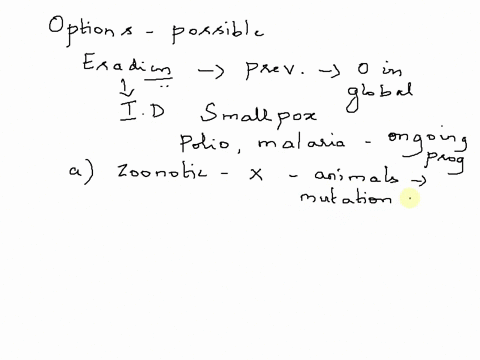 Options - possible
Eradicn → prev. → 0 in global
↓
I.D Smallpox
Polio, malaria - ongoing prog
a) Zoonotic - x - animals →
mutation